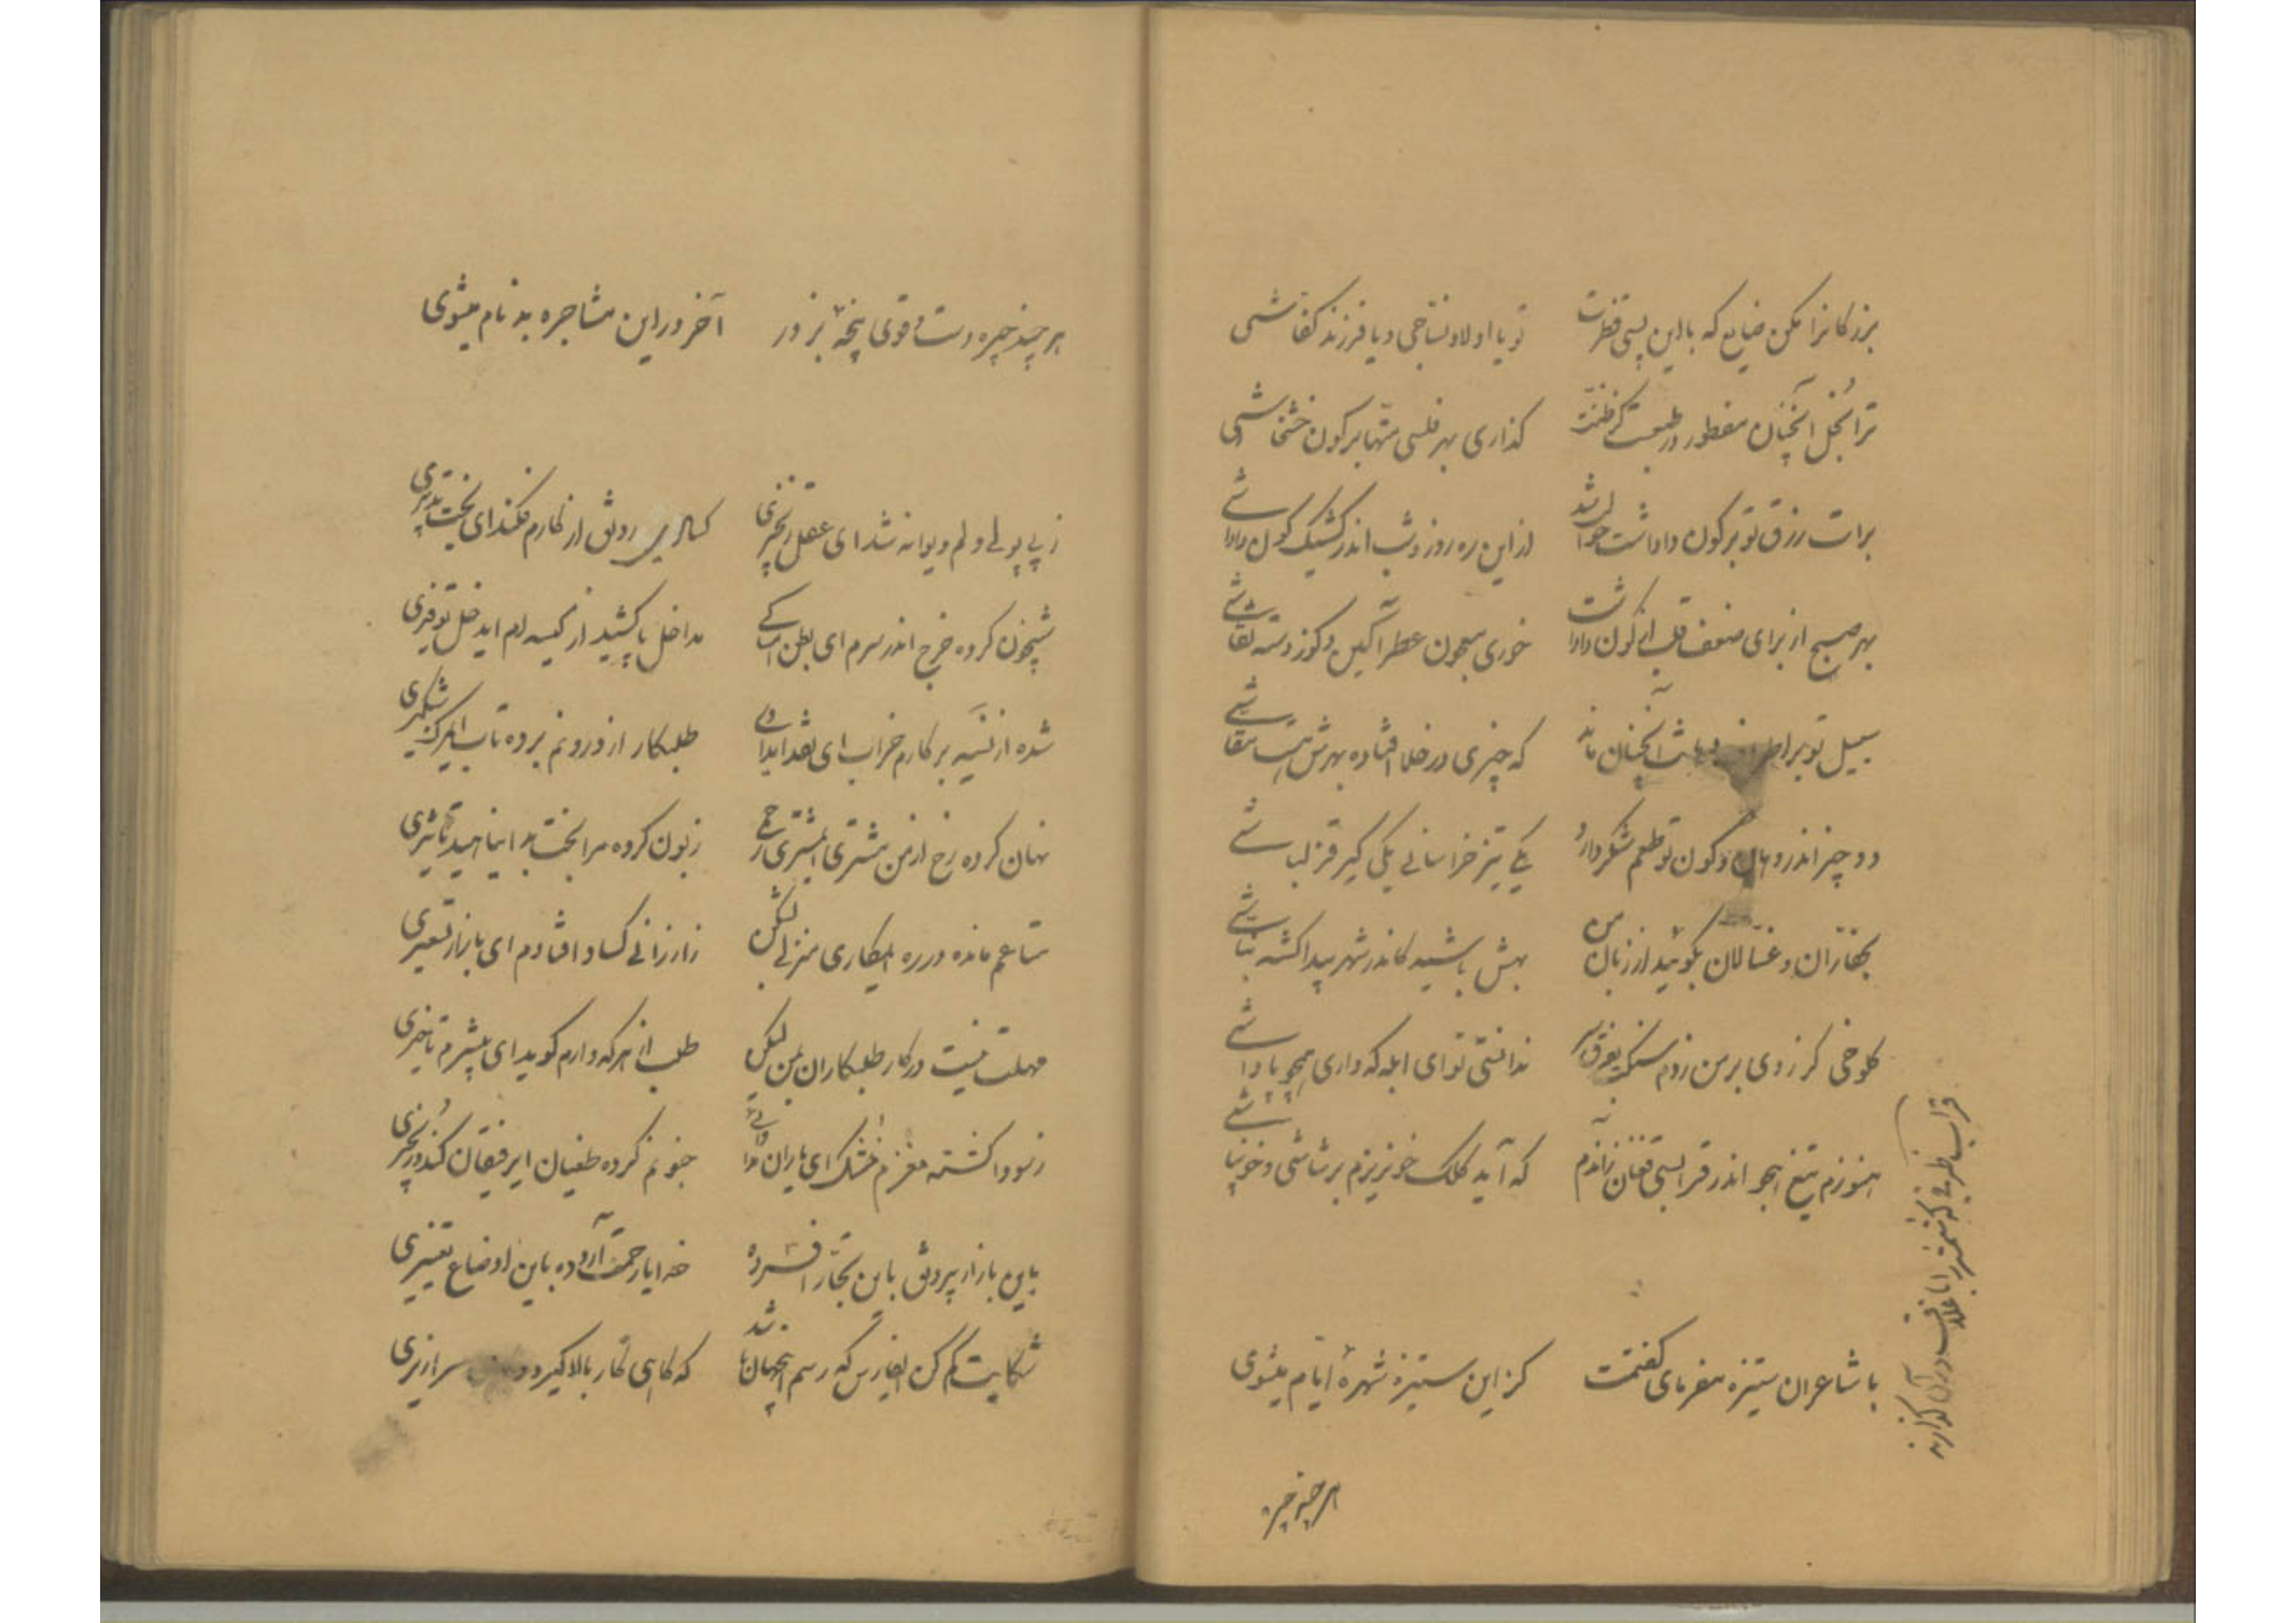 بزرگانرا مکن ضایع که با این پستی فطرت تو یا اولاد نساجی و یا فرزند کفاشی
ترا بخل آنچنان مفطور در طبعست کز
گذاری بهر فلسی بر کون خشخاشی
برات رزق تو بر کون داداشت حوالت شد از این ره روز و شب اندر کشیک کون داداشی
بهر صبح از برای ضعف قلب از کون داداشت خوری معجون عطرآگین و گوز دسته
سبیل تو بر اطراف آنچنان ماند که چیزی در خلا افتاده بهرش
دو چیز اندر دهان و کون تو طعم شکر دارد یکی تیز خراسانی یکی کیر قزلباشی
بحفاران و غسالان بگوئید از زبان من بهش باشید کاندر شهر پیدا گشته نباشی
کلوخی گر زدی بر من زدم سنگت بفرق سر ندانستی تو ای ابله که داری همچو پاداشی
هنوزم تیغ هجو اندر قراب که آید کلک خونریزم برشاشی و خونپاشی
قراب ظرفی که شمشیر را با غلاف در آن گذارند
با شاعران ستیزه مفرمای گفتمت کز این ستیزه شهرهٔ ایام میشوی
هر چند چیره
هر چند چیره دست و قوی پنجهٔ بزور آخر در این مشاجره بدنام میشوی
ز بی پولی دلم دیوانه شد ای عقل زنجیری کسالت رونق از کارم فکند ای بخت تدبیری
شبیخون کرده خرج اندر سرم ای بطن امساکی مداخل پا کشید از کیسه‌ام ای دخل توفیری
شده از نسیه بر کارم خراب ای نقد امدادی طلبکار از درونم برده تاب ای کیر کز شکیری
نهان کرده رخ از من مشتری ای مشتری رحمی زبون کرده مرا بخت بد ای ناهید تأثیری
متاعم مانده در ره ای مکاری منزلی لنگ کن ز ارزانی کساد افتادم ای بازار تسعیری
مهلت نیست در کار طلبکاران من لیکن طلب از هر که دارم گوید ای بیشرم تاخیری
ز سودا گشته مغزم خشک ای یاران مداوائی جنونم کرده طغیان ای رفیقان کند و زنجیری
باین بازار بیرونق باین تجار افسرده خدایا رحمت آر و ده باین اوضاع تغییری
شکایت کم کن که رسم اینجهان باشد که گاهی کار بالا گیرد و سرازیری